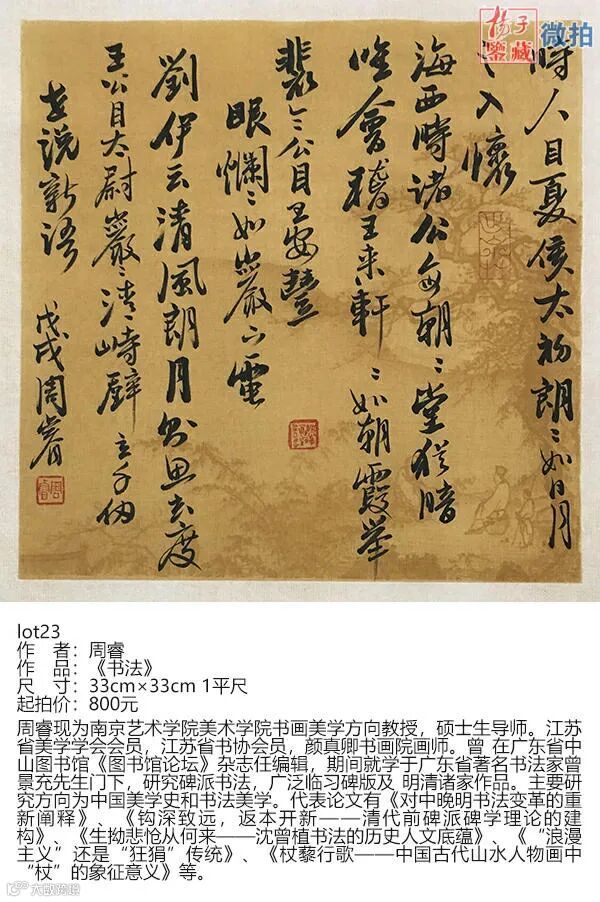 楊子
鑒藏
微拍
時人目夏侯太初朗〻如日月
之入懷
海西時諸公每朝〻堂猶暗
唯會稽王來軒〻如朝霞舉
裴令公目王安豐
眼爛〻如巖下電
劉伊云清風朗月思玄度
王公目太尉巖〻清峙壁立千仞
世說新語
戊戌周睿
周睿
lot23
作 者：周睿
作 品：《书法》
尺 寸：33cm×33cm 1平尺
起拍价：800元
周睿现为南京艺术学院美术学院书画美学方向教授，硕士生导师。江苏
省美学学会会员，江苏省书协会员，颜真卿书画院画师。曾 在广东省中
山图书馆《图书馆论坛》杂志任编辑，期间就学于广东省著名书法家曾
景充先生门下，研究碑派书法，广泛临习碑版及 明清诸家作品。主要研
究方向为中国美学史和书法美学。代表论文有《对中晚明书法变革的重
新阐释》、《钩深致远，返本开新——清代前碑派碑学理论的建
构》、《生拗悲怆从何来——沈曾植书法的历史人文底蕴》、《“浪漫
主义”还是“狂狷”传统》、《杖藜行歌——中国古代山水人物画中
“杖”的象征意义》等。